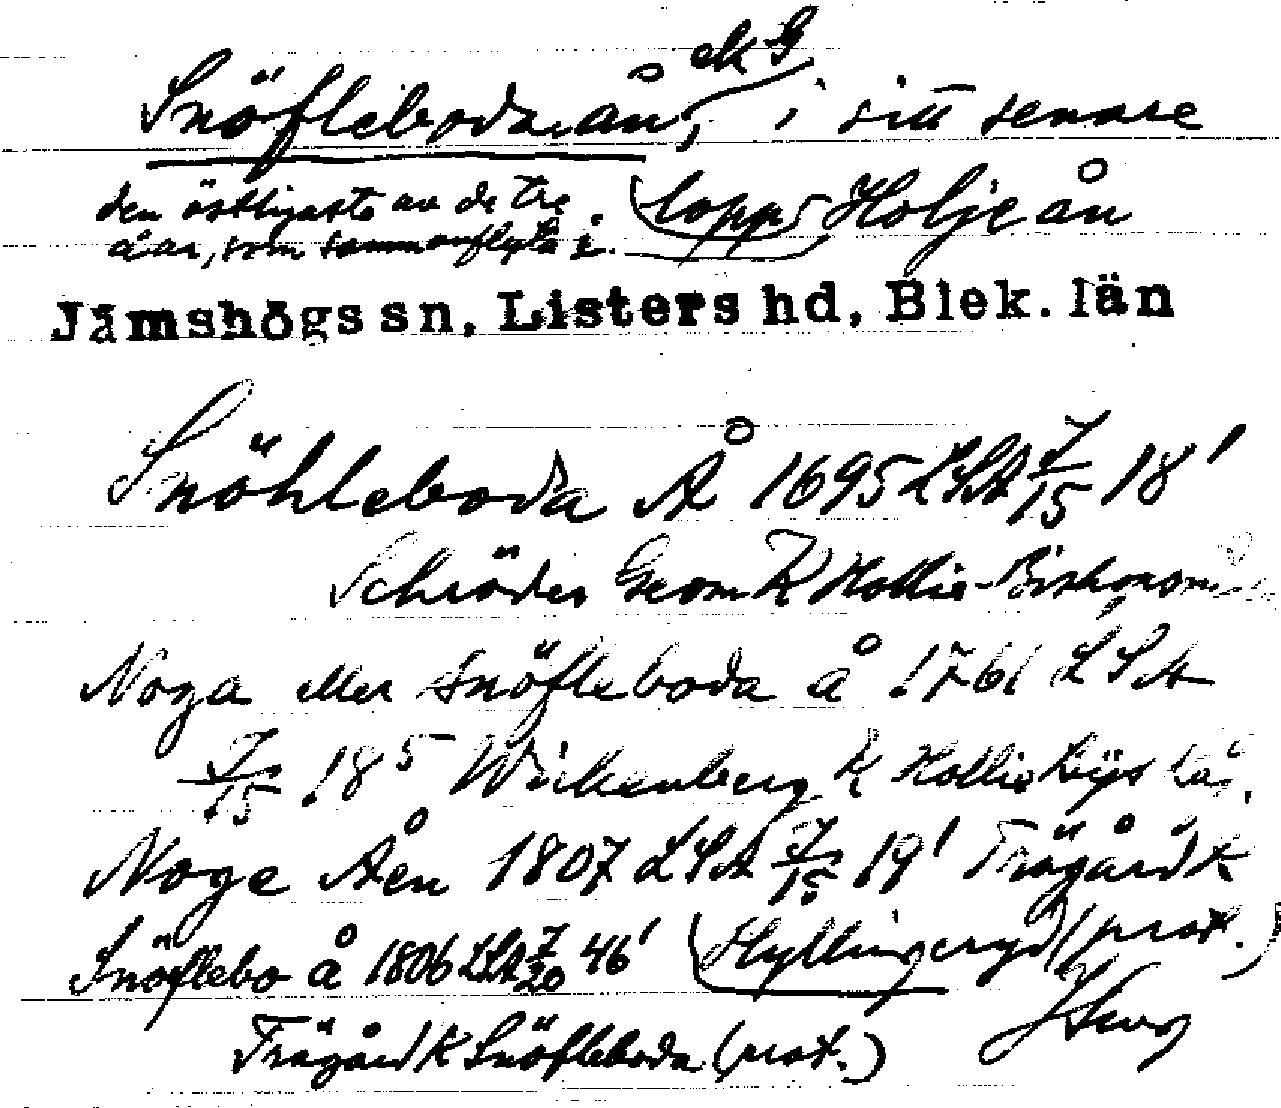 ek G
Snöfleboda ån, i sitt senare
den östligaste av de tre lopp Holje ån
åar, som sammanflyta i.
Jämshögs sn, Listers hd, Blek. län
Snöhleboda Å 1695 LSA 7/15 18'
Schröder Geom K Hollie
Noga eller Snöfleboda å 1761 LSA
7/15 18⁵ Wickenberg K Hollie
Noge Åen 1807 LSA 7/15 19' Trägård K
Snöflebo å 1806 LSA 7/20 46' (Hyllingeryd (prot.)
Trägård K Snöfleboda (prot.)